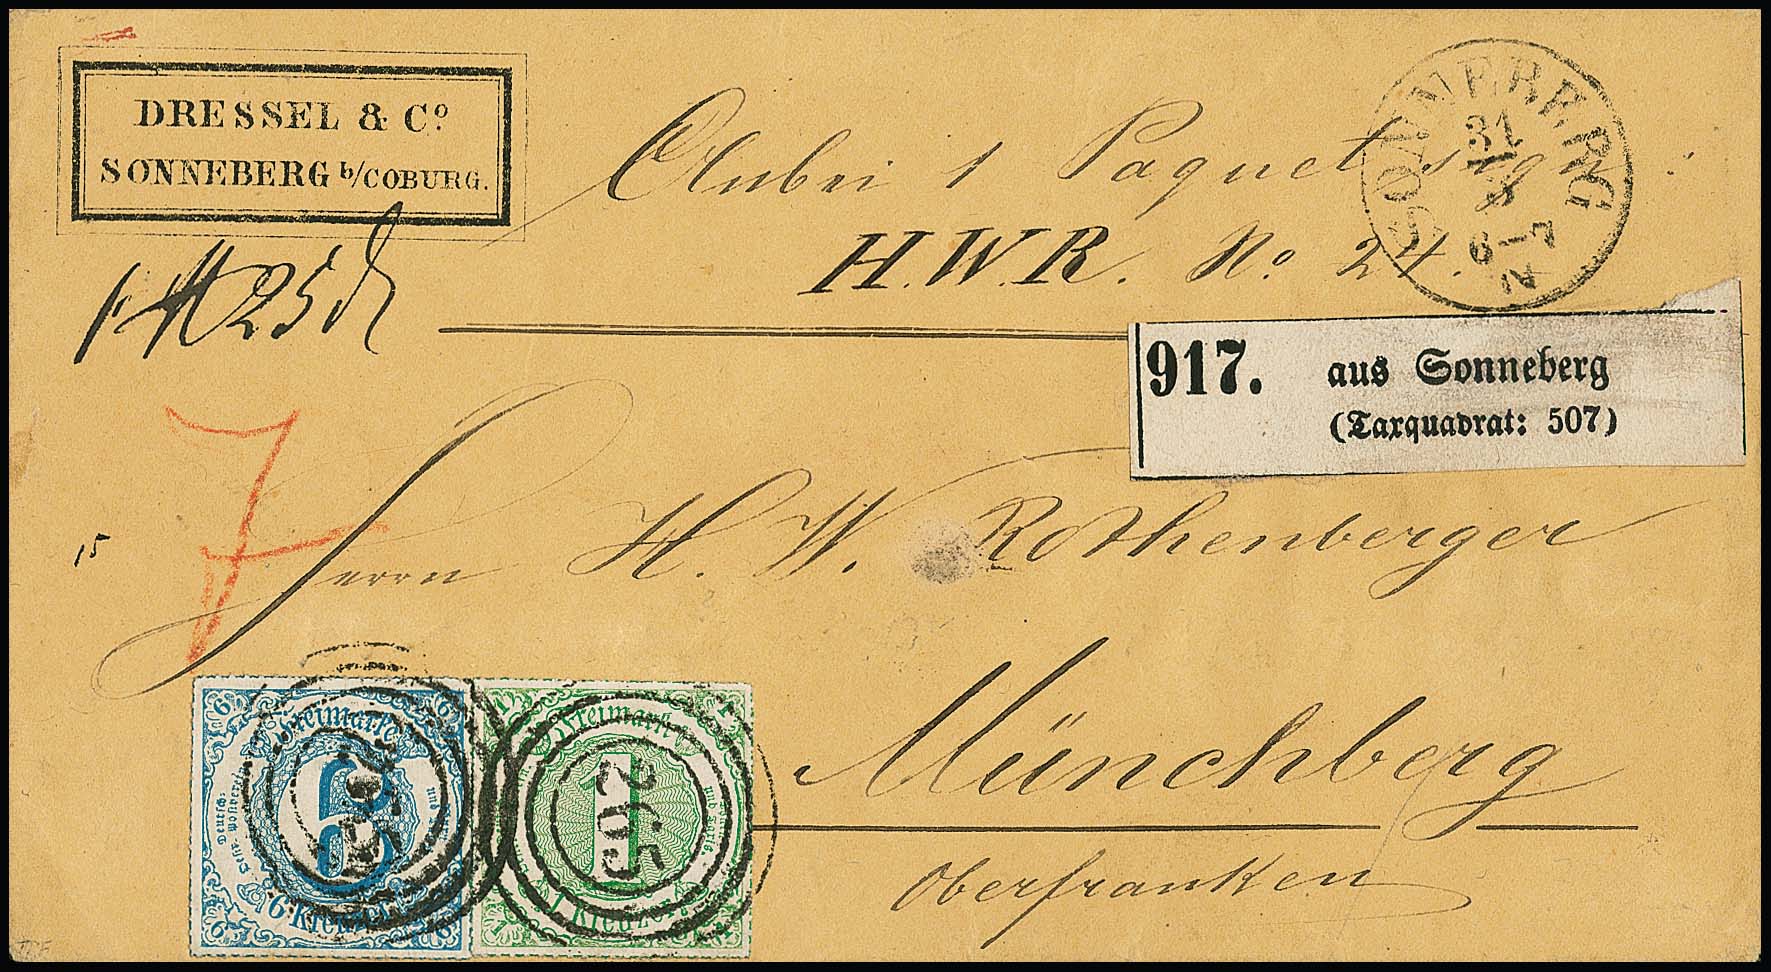 DRESSEL & Cº
SONNEBERG b/COBURG.
Anbei 1 Paquet sign:
H.W.R. No 24.
SONNEBERG
31
8
6-7
N
1 25
917. aus Sonneberg
(Taxquadrat: 507)
7
15
Herrn H. W. Rothenberger
Münchberg
Oberfranken
6 6
Freimarke
Deutsch-
Östr. Postverein
6 Kreuzer.
6 6
265
1 1
Freimarke
1
1 Kreuzer.
1 1
265